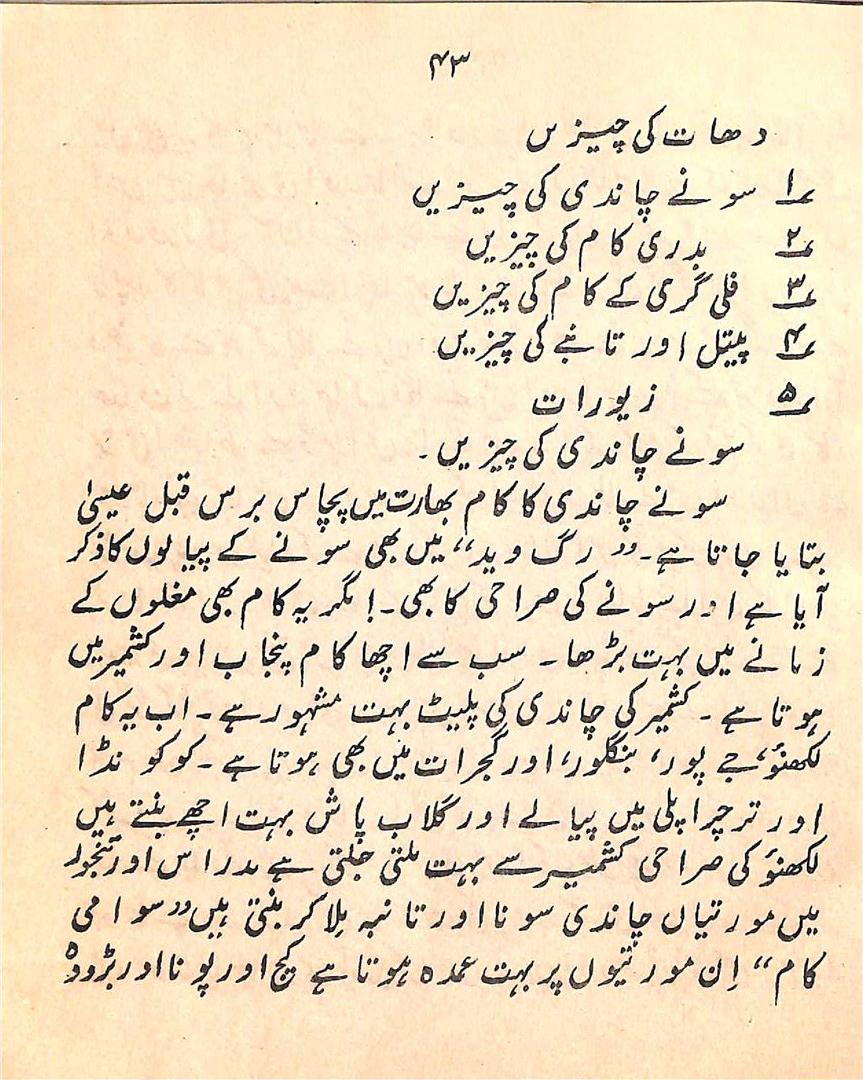 ۴۳
دھات کی چیزیں
۱ سونے چاندی کی چیزیں
۲ بدری کام کی چیزیں
۳ فلی گری کے کام کی چیزیں
۴ پیتل اور تانبے کی چیزیں
۵ زیورات
سونے چاندی کی چیزیں۔
سونے چاندی کا کام بھارت میں پچاس برس قبل عیسیٰ
بتایا جاتا ہے۔ “رگ وید” میں بھی سونے کے پیالوں کا ذکر
آیا ہے اور سونے کی صراحی کا بھی۔! مگر یہ کام بھی مغلوں کے
زمانے میں بہت بڑھا۔ سب سے اچھا کام پنجاب اور کشمیر میں
ہوتا ہے۔ کشمیر کی چاندی کی پلیٹ بہت مشہور ہے۔ اب یہ کام
لکھنؤ، جے پور، بنگلور، اور گجرات میں بھی ہوتا ہے۔ کوکونڈا
اور ترچراپلی میں پیالے اور گلاب پاش بہت اچھے بنتے ہیں
لکھنؤ کی صراحی کشمیر سے بہت ملتی جلتی ہے مدراس اور تنجور
میں مورتیاں چاندی سونا اور تانبہ مِلا کر بنتی ہیں “سوامی
کام” اِن مورتیوں پر بہت عمدہ ہوتا ہے کچ اور پونا اور بڑودہ